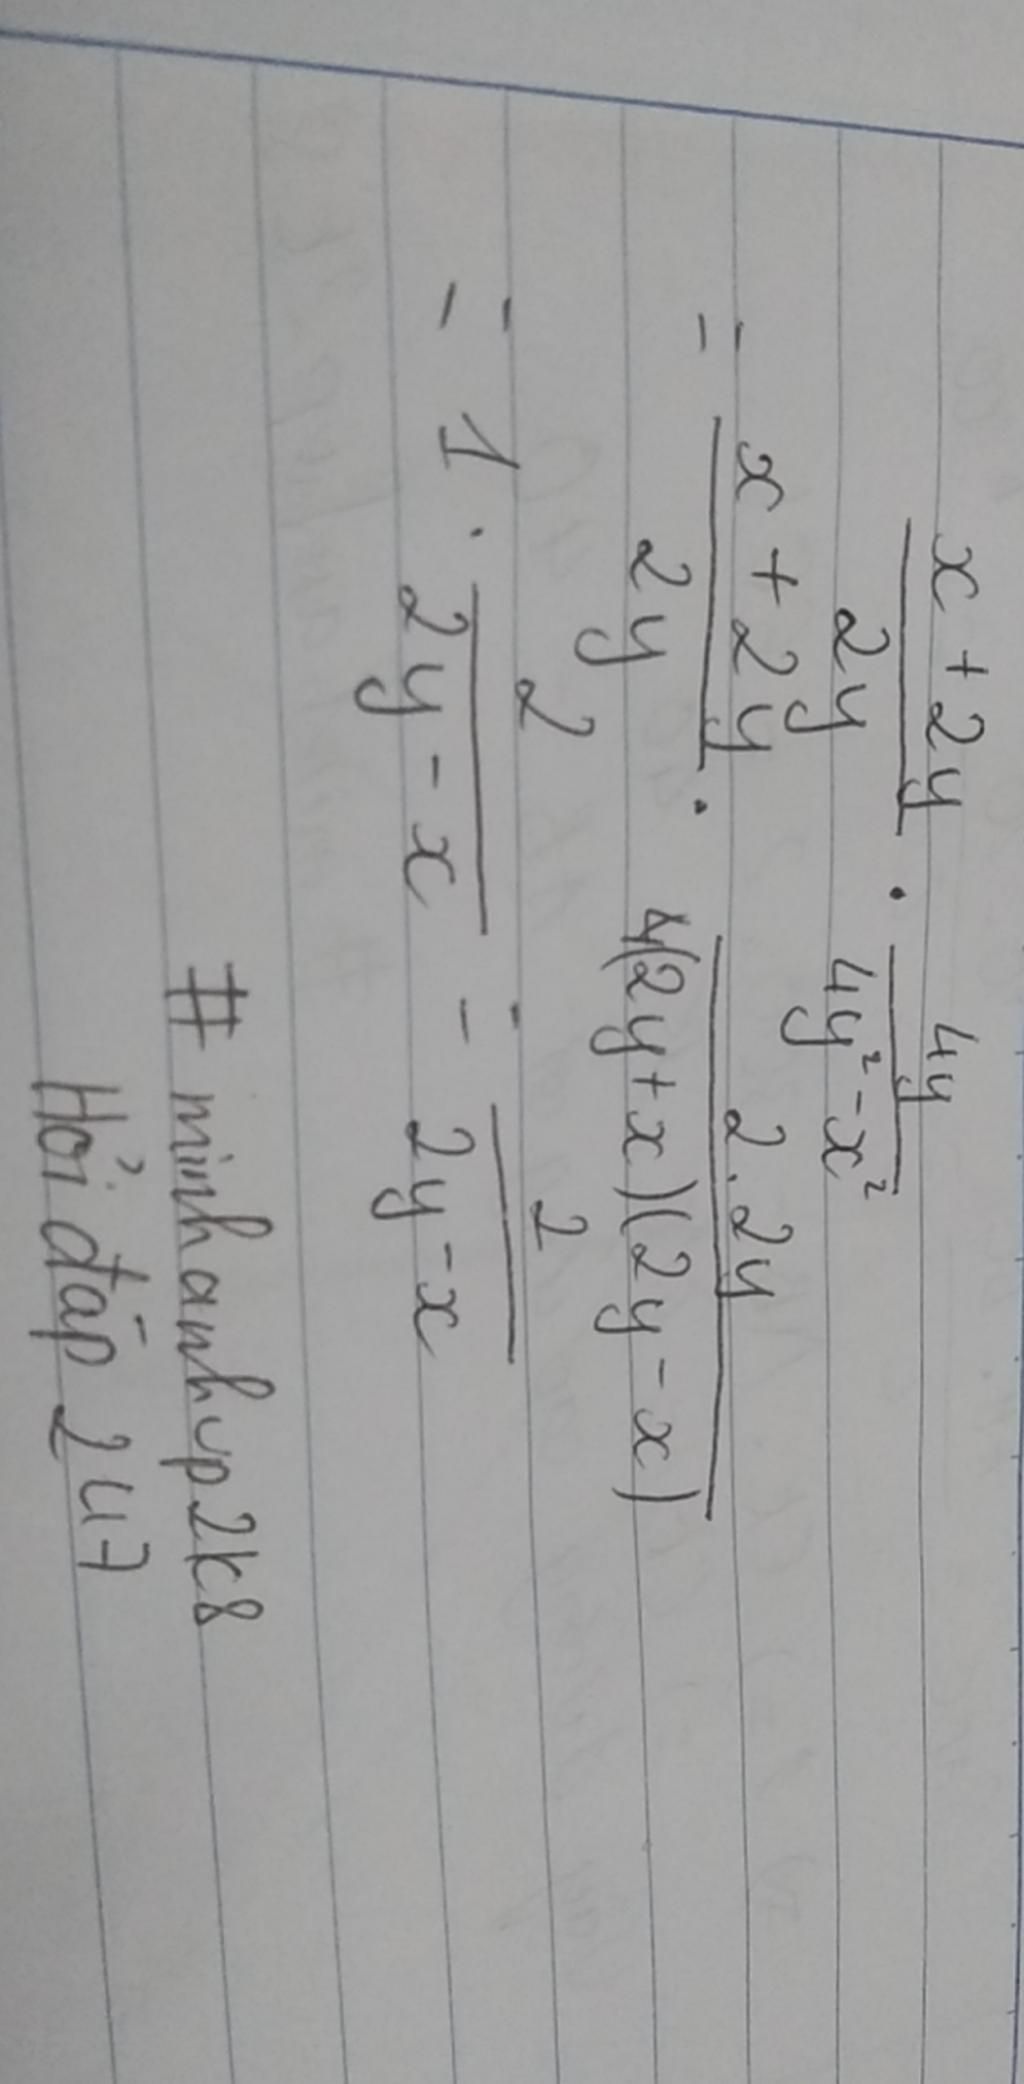 x + 2y / 2y . 4y / 4y² - x²
= x + 2y / 2y . 2.2y / (2y + x)(2y - x)
= 1 . 2 / 2y - x = 2 / 2y - x
# minhanhvp2k8
Hỏi đáp 247